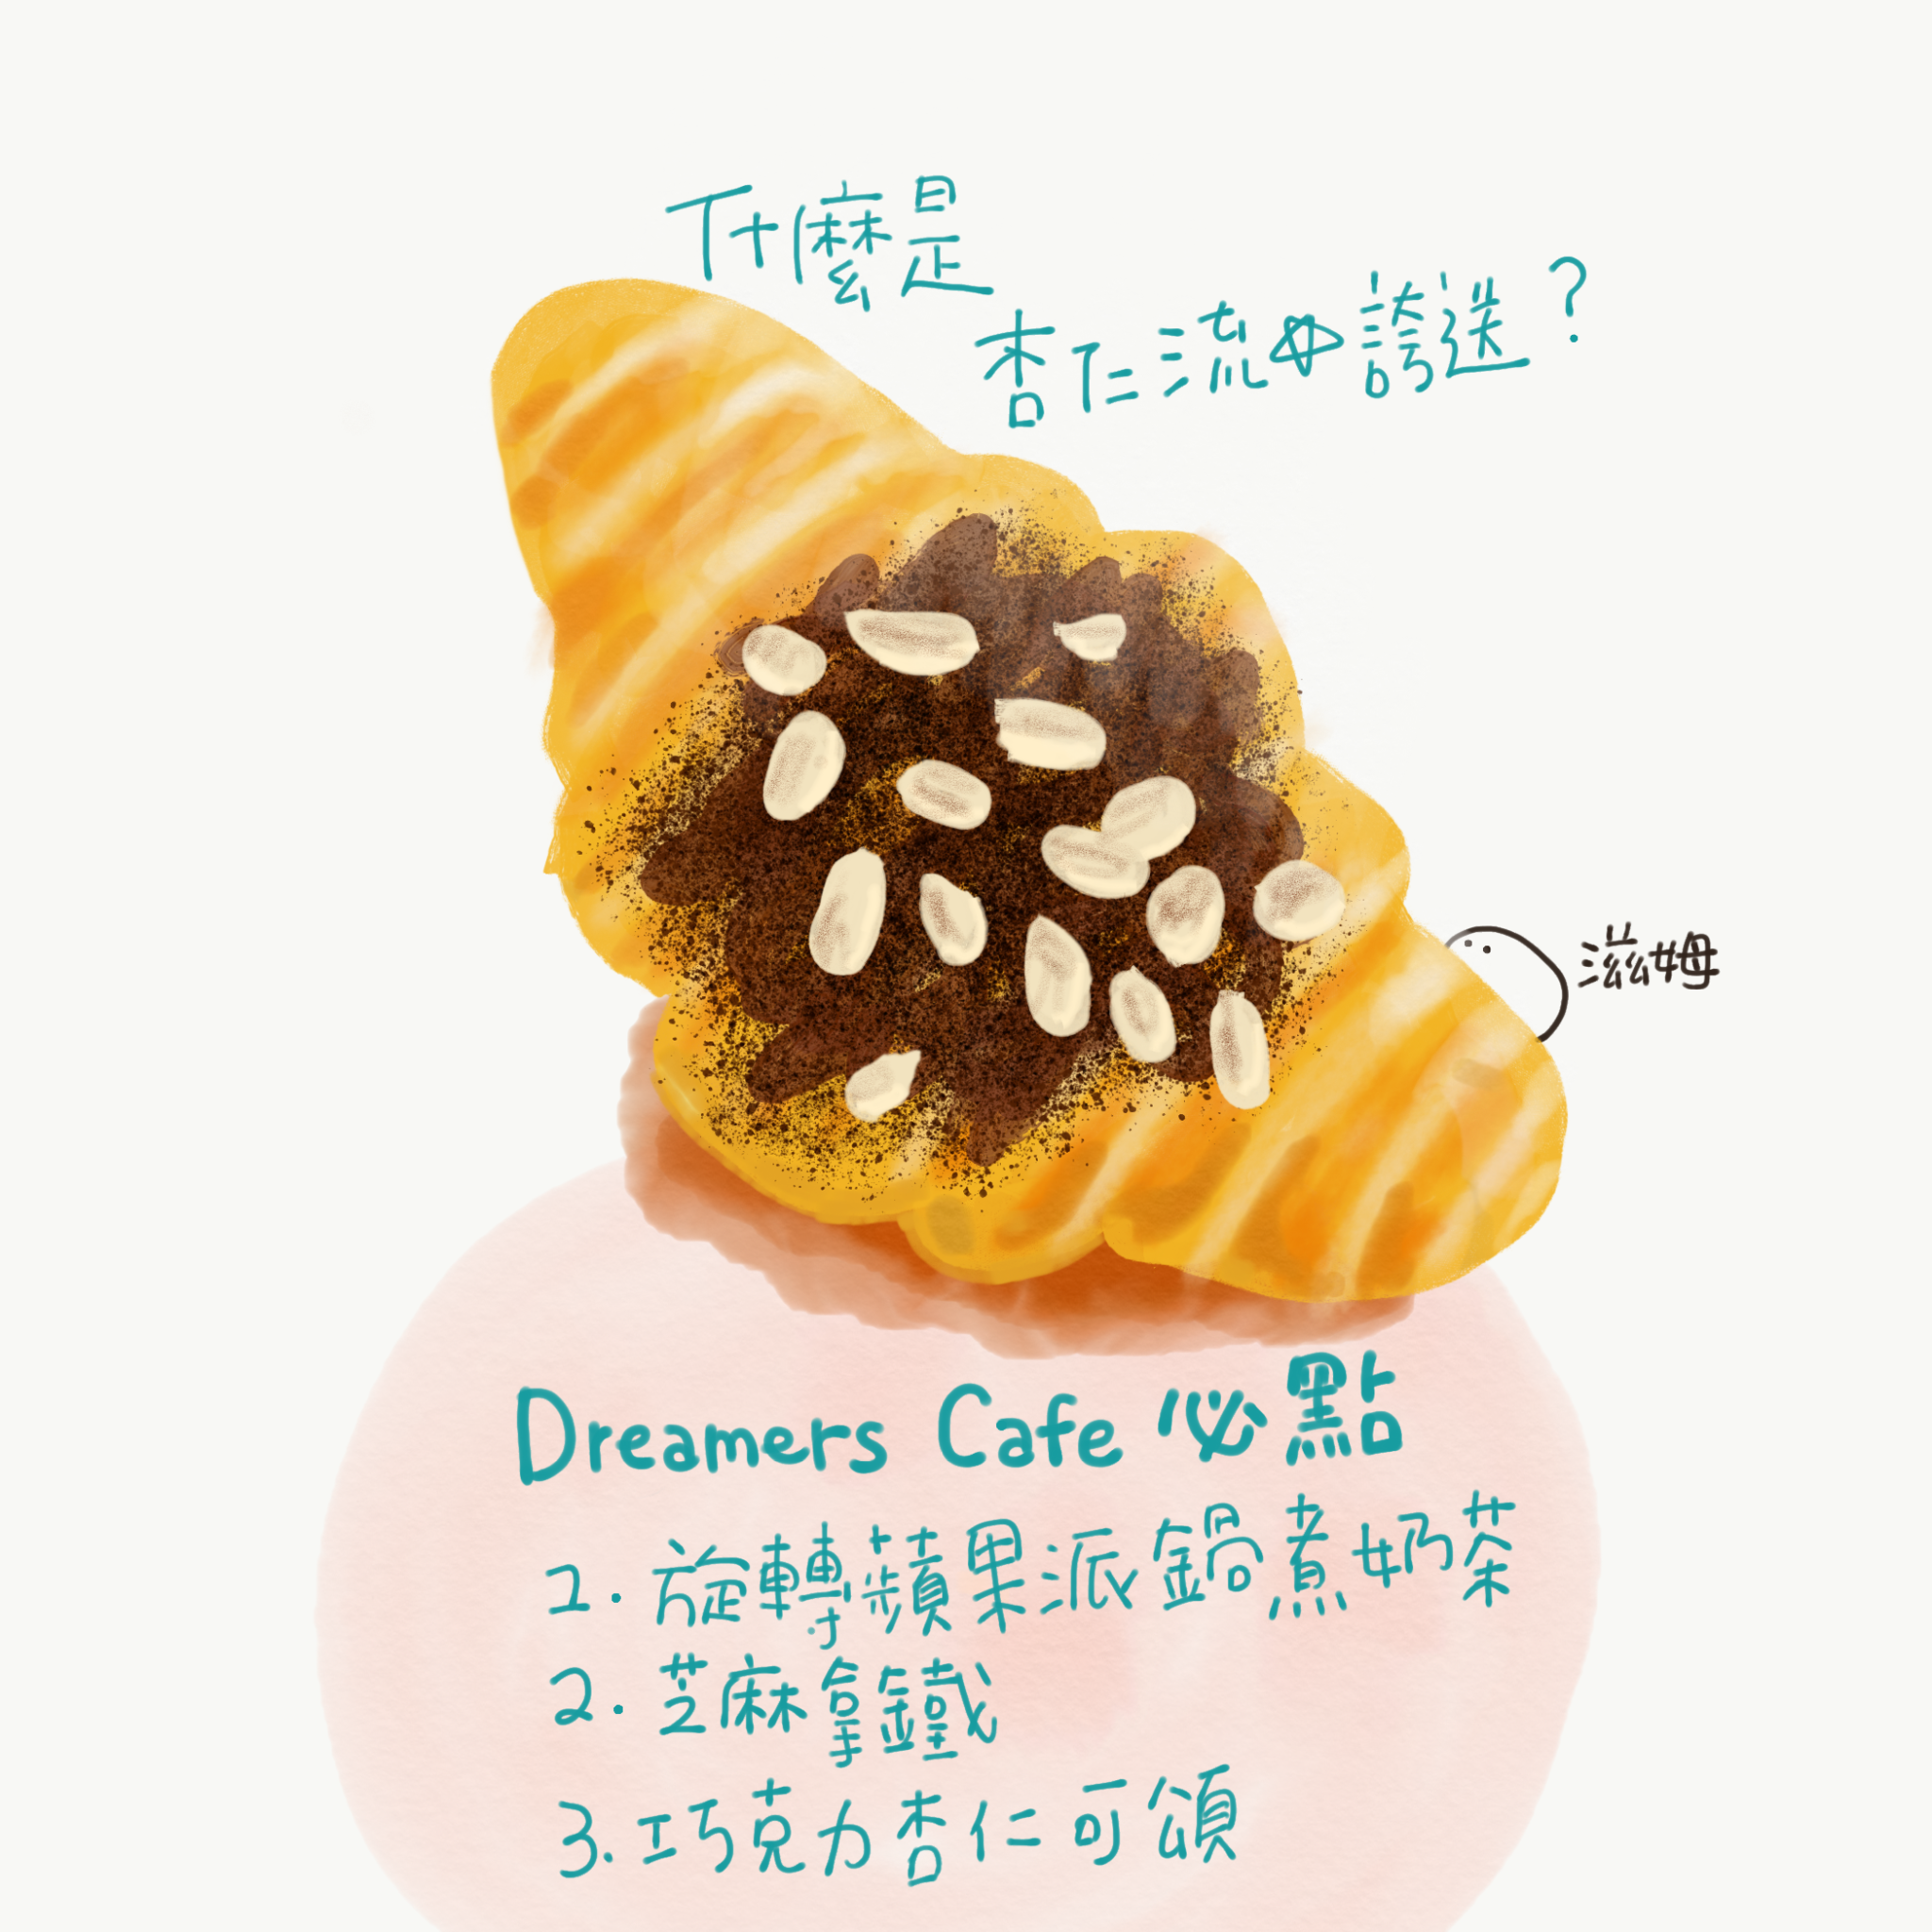 什麼是
杏仁流☆誇送?
滋姆
Dreamers Cafe 必點
1. 旋轉蘋果派鍋煮奶茶
2. 芝麻拿鐵
3. 巧克力杏仁可頌